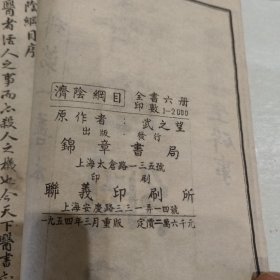 濟陰綱目 全書六册
印數1-2000
原作者：武之望
出版 發行
錦章書局
上海太倉路一三五號
印刷
聯義印刷所
上海安慶路三三一弄一四號
一九五四年三月重版 定價二萬六千元
陰綱目序
醫者活人之事而亦殺人之機也今天下醫書